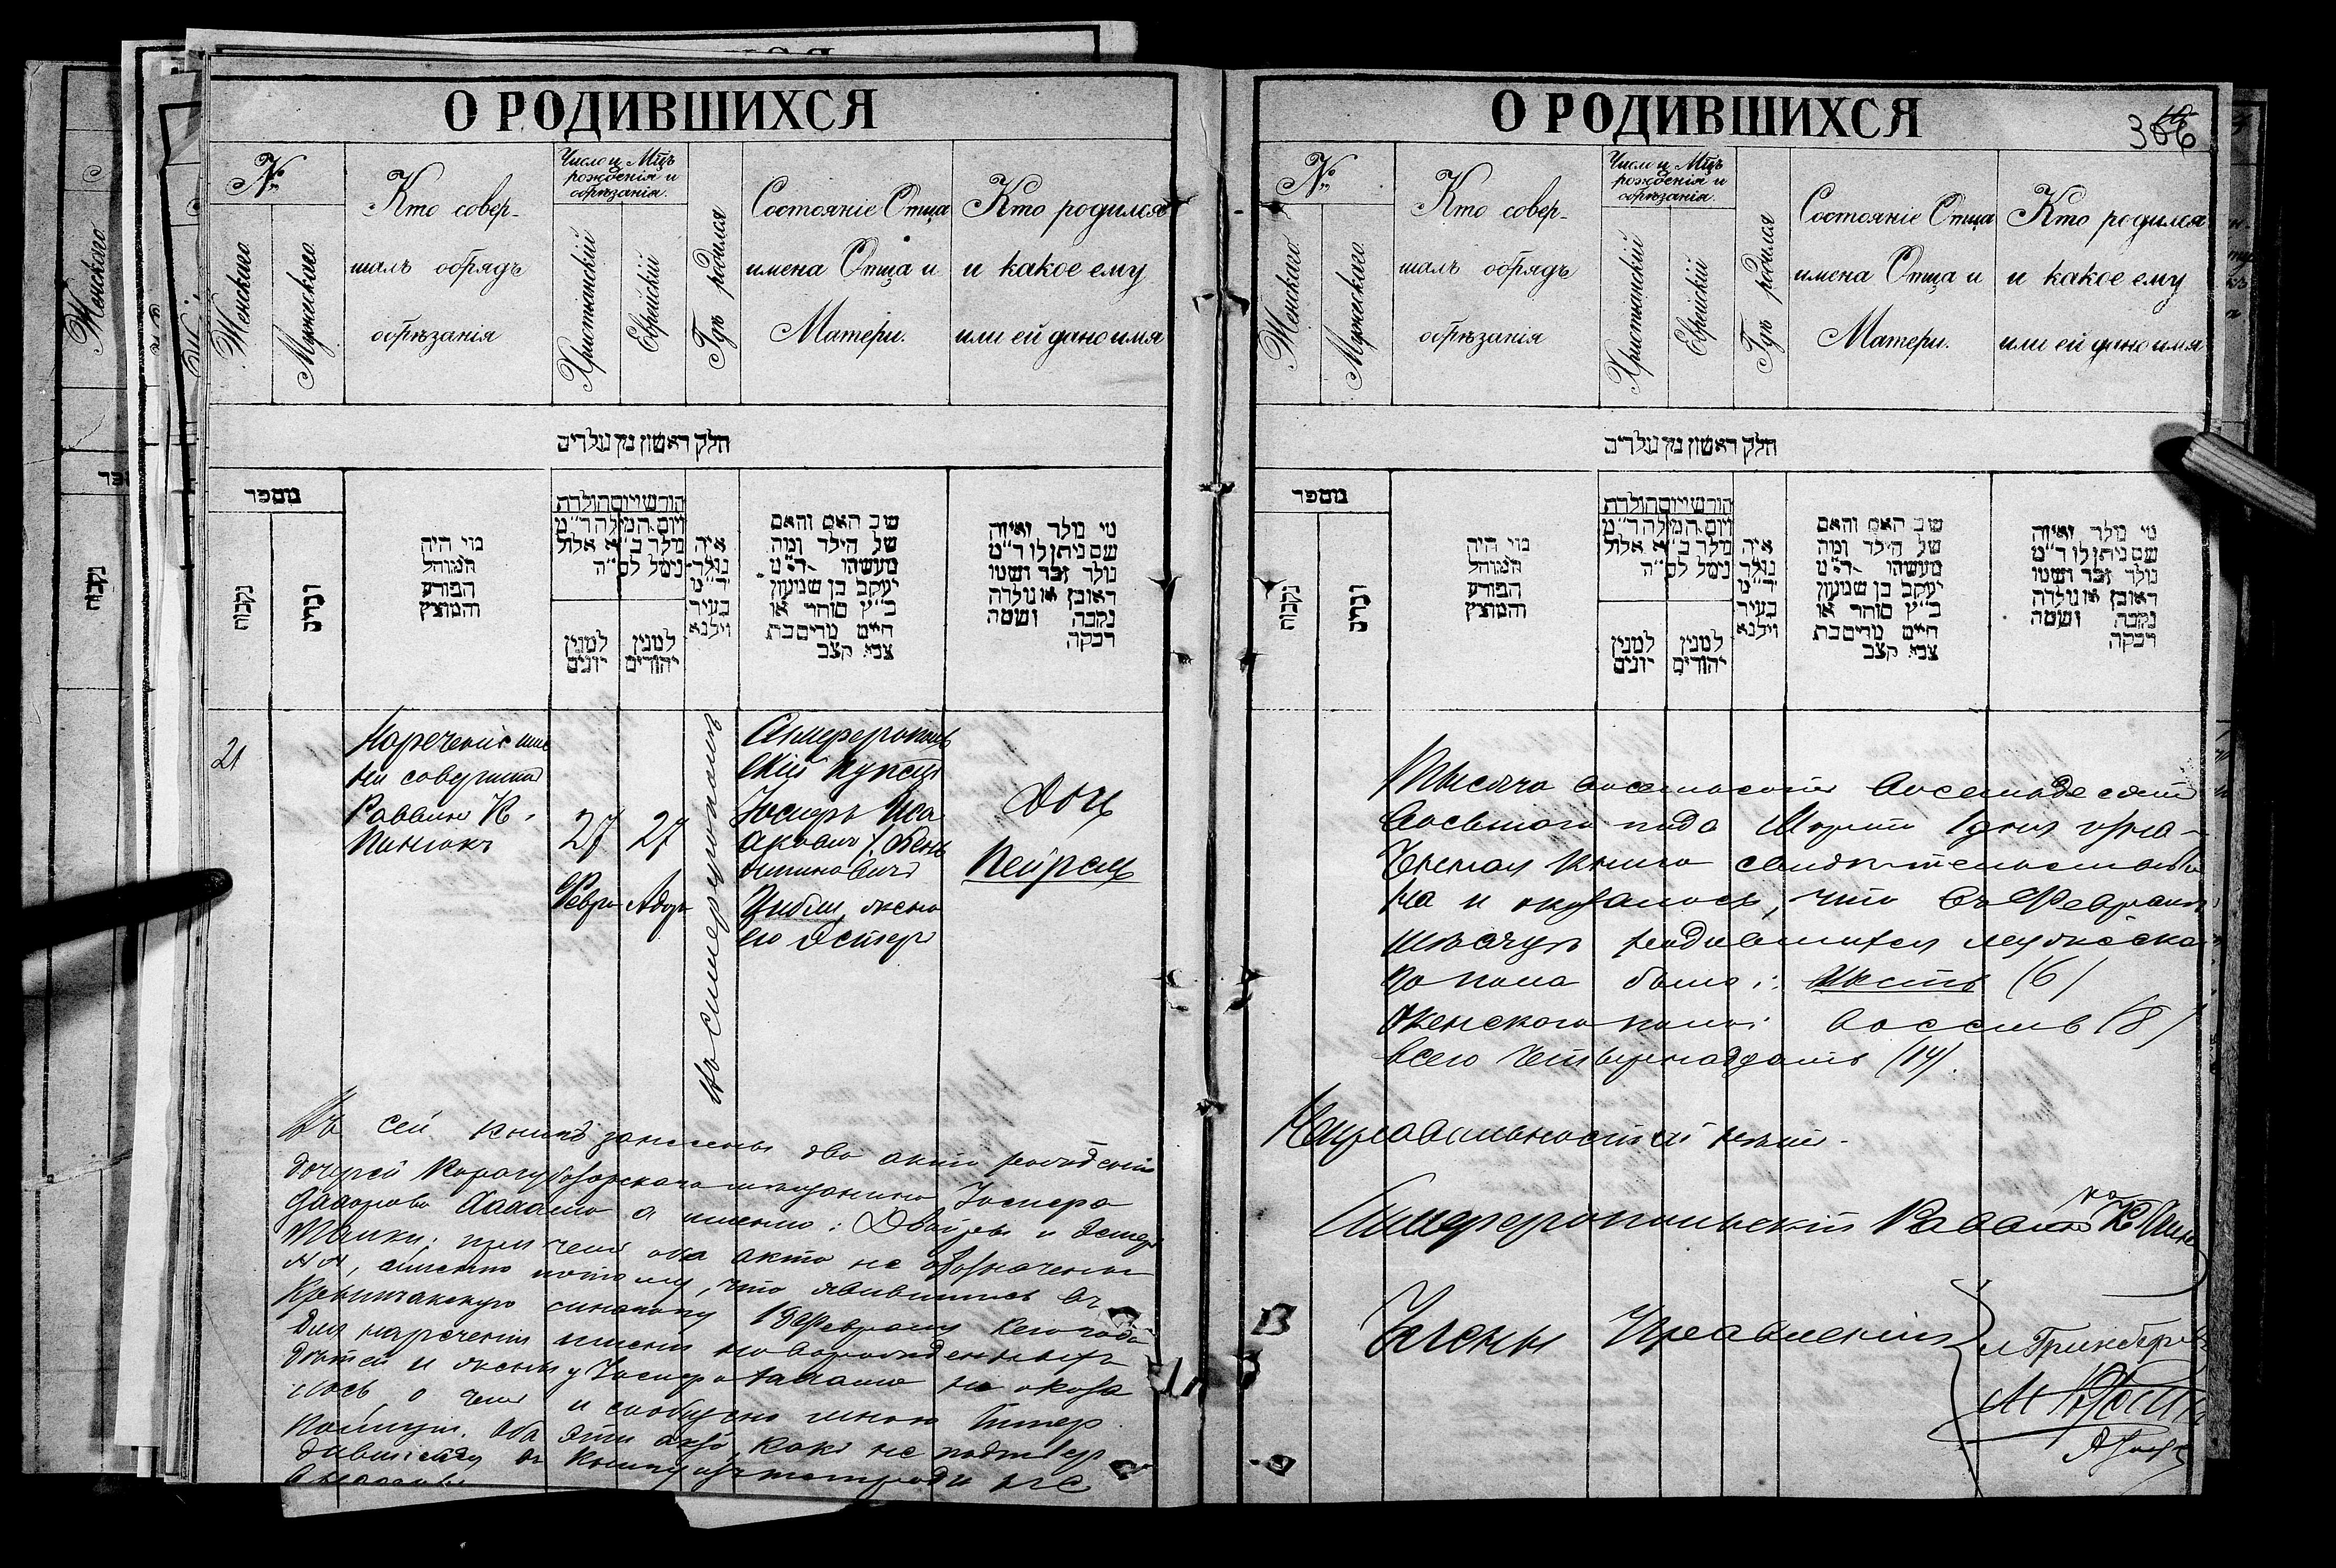 О РОДИВШИХСЯ
№
Женскаго
Мужескаго
Кто совер-
шалъ обрядъ
обрѣзанія
Число и Мцъ
рожденія и
обрѣзанія.
Христіанскій
Еврейскій
Гдѣ родился
Состояніе Отца
имена Отца и
Матери.
Кто родился
и какое ему
или ей дано имя
חלק ראשון מן נולדים
מספר
נקבות
זכרים
מוי היה
המוהל
הפורע
והמוצץ
ויום המילה ד״מ
נולד ב״א אלול
נימל לס״ה
למנין
יונים
למנין
יהודים
איה
נולד
ד״מ
בעיר
וילנא
שב האם והאם
של הילד ומה
מעשהו ד״מ
יעקב בן שמעון
כ״ץ סוחר או
חיים מרים בת
צבי קצב
מי נולד ואיזה
שם ניתן לו ד״מ
נולד זכר ושמו
ראובן או נולדה
נקבה ושמה
רבקה
21
Нареченіе име
ни совершилъ
Раввинъ К.
27
Февра
27
Адаръ
Въ Симферополѣ
Симферополь
скій купецъ
Іосифъ Иса
аковичъ
жена
его Эстеръ
Дочь
Пейрецъ
Въ сей книгѣ записаны два акта рожденія
дочерей Карасубазарскаго мѣщанина Іосифа
а именно: Двойры и Эстеръ
Малки; при чемъ оба акта не обозначены
№№, именно потому, что явившись въ
Крымчакскую синагогу 18 Февраля сего года
для нареченія имени новорожденныхъ
дѣтей и жены у Іосифа не оказа
лось, о чемъ и сообщено мною
Полиціи. Оба эти акта, какъ не подтвер
О РОДИВШИХСЯ
386
№
Женскаго
Мужескаго
Кто совер-
шалъ обрядъ
обрѣзанія
Число и Мцъ
рожденія и
обрѣзанія.
Христіанскій
Еврейскій
Гдѣ родился
Состояніе Отца
имена Отца и
Матери.
Кто родился
и какое ему
или ей дано имя
חלק ראשון מן נולדים
מספר
נקבות
זכרים
מוי היה
המוהל
הפורע
והמוצץ
ויום המילה ד״מ
נולד ב״א אלול
נימל לס״ה
למנין
יונים
למנין
יהודים
איה
נולד
ד״מ
בעיר
וילנא
שב האם והאם
של הילד ומה
מעשהו ד״מ
יעקב בן שמעון
כ״ץ סוחר או
חיים מרים בת
צבי קצב
מי נולד ואיזה
שם ניתן לו ד״מ
נולד זכר ושמו
ראובן או נולדה
נקבה ושמה
רבקה
Тысяча восемьсотъ восемьдесятъ
восьмого года Марта 1 дня озна-
ченная книга свидѣтельствова
на и оказалось, что въ Февралѣ
мѣсяцѣ родившихся мужеска
го пола было: шесть (6)
Женскаго пола: восемь (8)
всего четырнадцать (14).
Неправильностей нѣтъ.
Симферопольскій Раввинъ К.
Члены Правленія
Гринбергъ